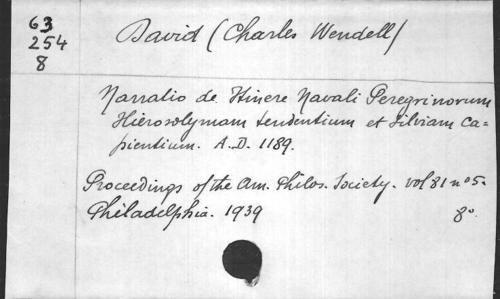 63
254
8
David (Charles Wendell)
Narratio de Itinere Navali Peregrinorum
Hierosolymam tendentium et Silviam Ca=
pientium. A.D. 1189.
Proceedings of the Am. Philos. Society. vol 81 nº 5.
Philadelphia. 1939 8º.